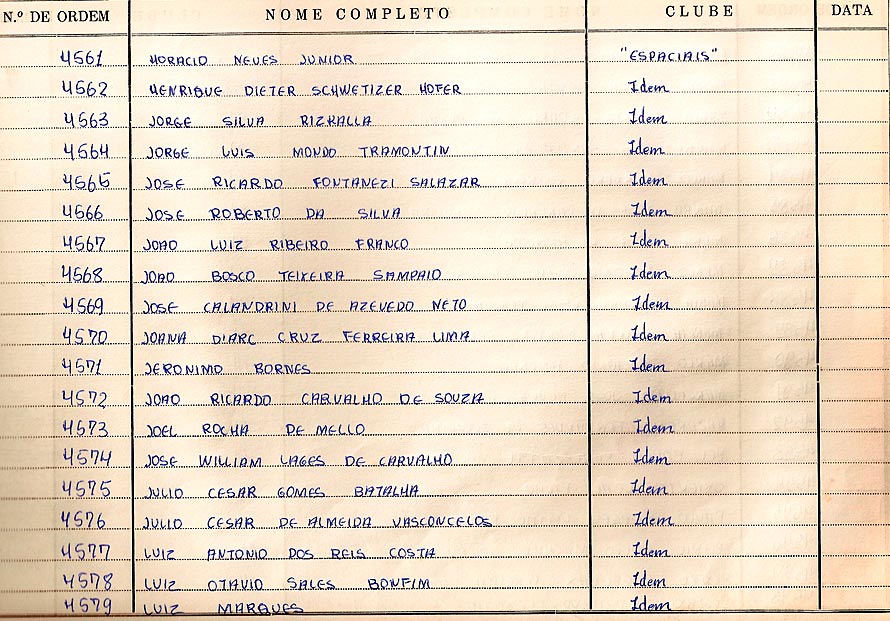 N.º DE ORDEM NOME COMPLETO CLUBE DATA
4561 HORACIO NEVES JUNIOR "ESPACIAIS"
4562 HENRIQUE DIETER SCHWETIZER HOFER Idem
4563 JORGE SILVA RIZKALLA Idem
4564 JORGE LUIS MONDO TRAMONTIN Idem
4565 JOSE RICARDO FONTANEZI SALAZAR Idem
4566 JOSE ROBERTO DA SILVA Idem
4567 JOAO LUIZ RIBEIRO FRANCO Idem
4568 JOAO BOSCO TEIXEIRA SAMPAIO Idem
4569 JOSE CALANDRINI DE AZEVEDO NETO Idem
4570 JOANA D'ARC CRUZ FERREIRA LIMA Idem
4571 JERONIMO BORNES Idem
4572 JOAO RICARDO CARVALHO DE SOUZA Idem
4573 JOEL ROCHA DE MELLO Idem
4574 JOSE WILLIAM LAGES DE CARVALHO Idem
4575 JULIO CESAR GOMES BATALHA Idem
4576 JULIO CESAR DE ALMEIDA VASCONCELOS Idem
4577 LUIZ ANTONIO DOS REIS COSTA Idem
4578 LUIZ OTAVIO SALES BONFIM Idem
4579 LUIZ MARQUES Idem